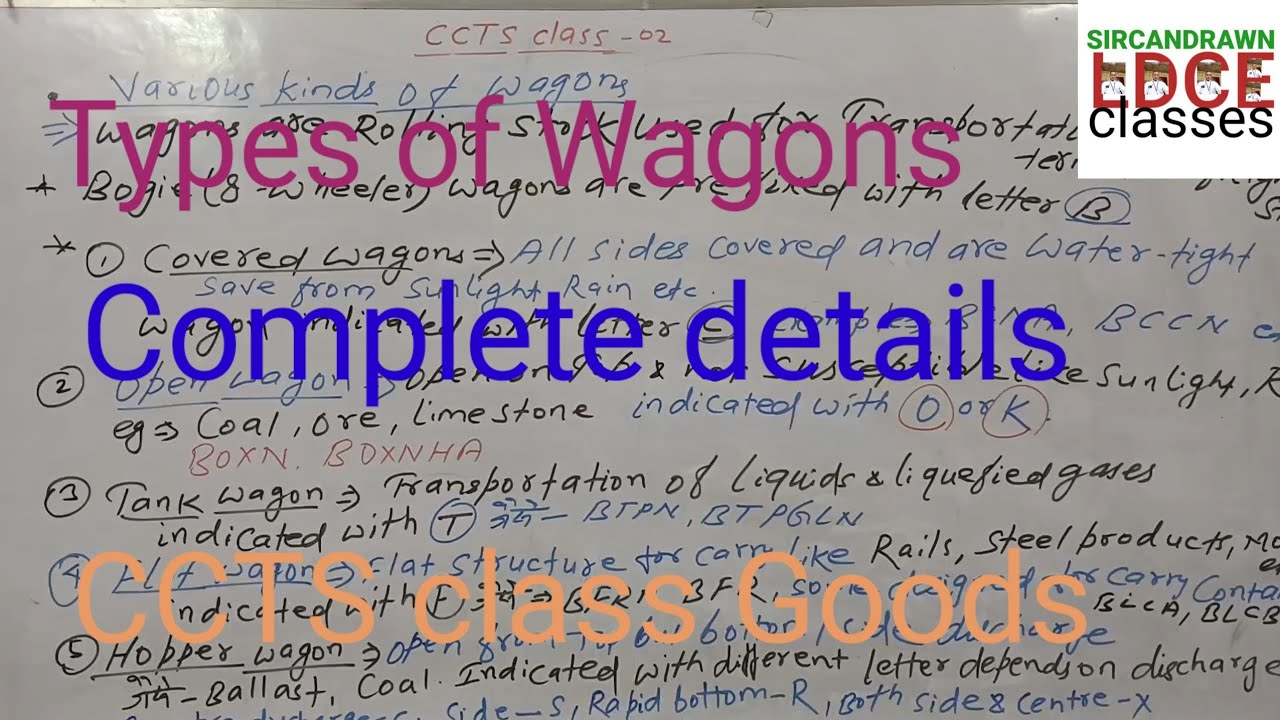 CCTS class-02
SIRCANDRAWN
LDCE
classes
Various kinds of wagons
⇒ wagons are Rolling Stock used for
Types of Wagons
* Bogie (8-wheeler) wagons are with letter B
* ① Covered wagons ⇒ All sides covered and are water-tight
save from Sunlight, Rain etc.
wagon indicated with letter BCCN
Complete details
② Open wagon ⇒ open on like sunlight,
eg ⇒ Coal, ore, limestone indicated with O or K.
BOXN, BOXNHA
③ Tank wagon ⇒ Transportation of liquids & liquefied gases
indicated with T जैसे - BTPN, BTPGLN
④ wagon ⇒ flat structure for carry like Rails, Steel products,
indicated with F जैसे ⇒ BFR, for carry
BLCA, BLCB
CCTS class Goods
⑤ Hopper wagon ⇒ open from side discharge
जैसे - Ballast, Coal. Indicated with different letter depends on discharge
side-S, Rapid bottom-R, Both side & centre-X